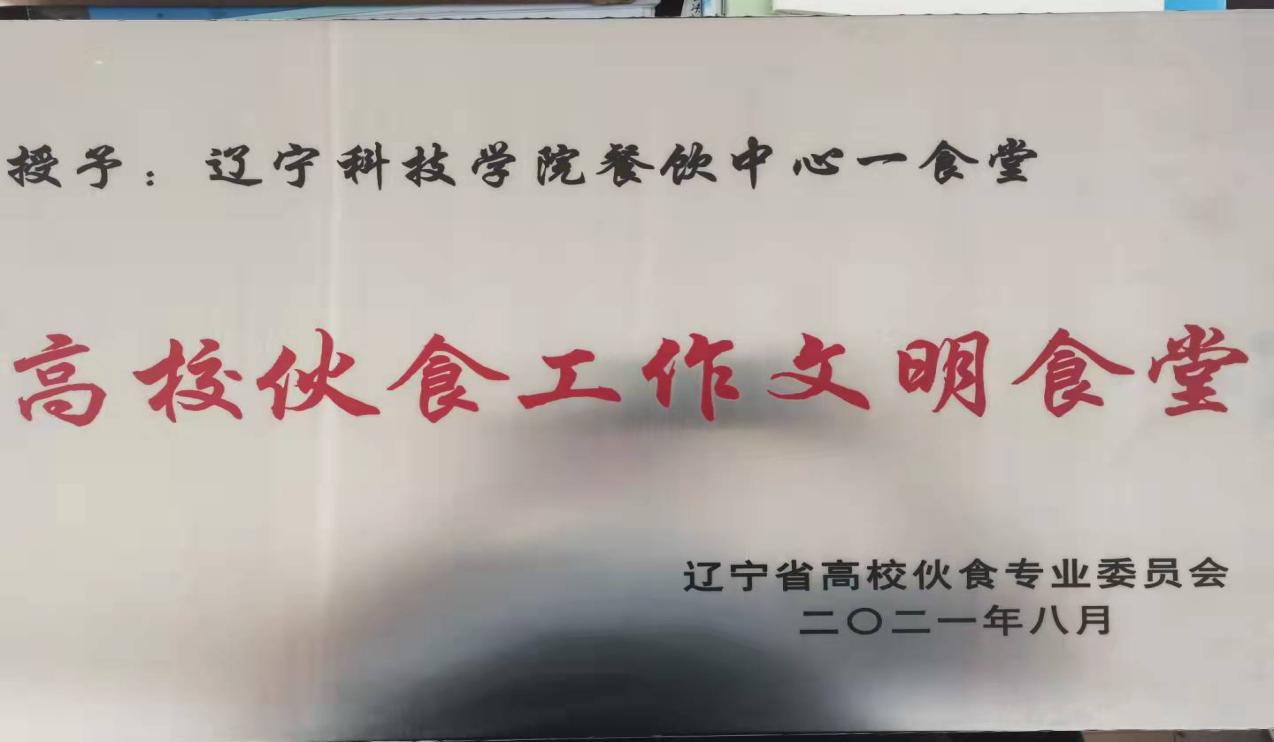 授予：辽宁科技学院餐饮中心一食堂
高校伙食工作文明食堂
辽宁省高校伙食专业委员会
二〇二一年八月